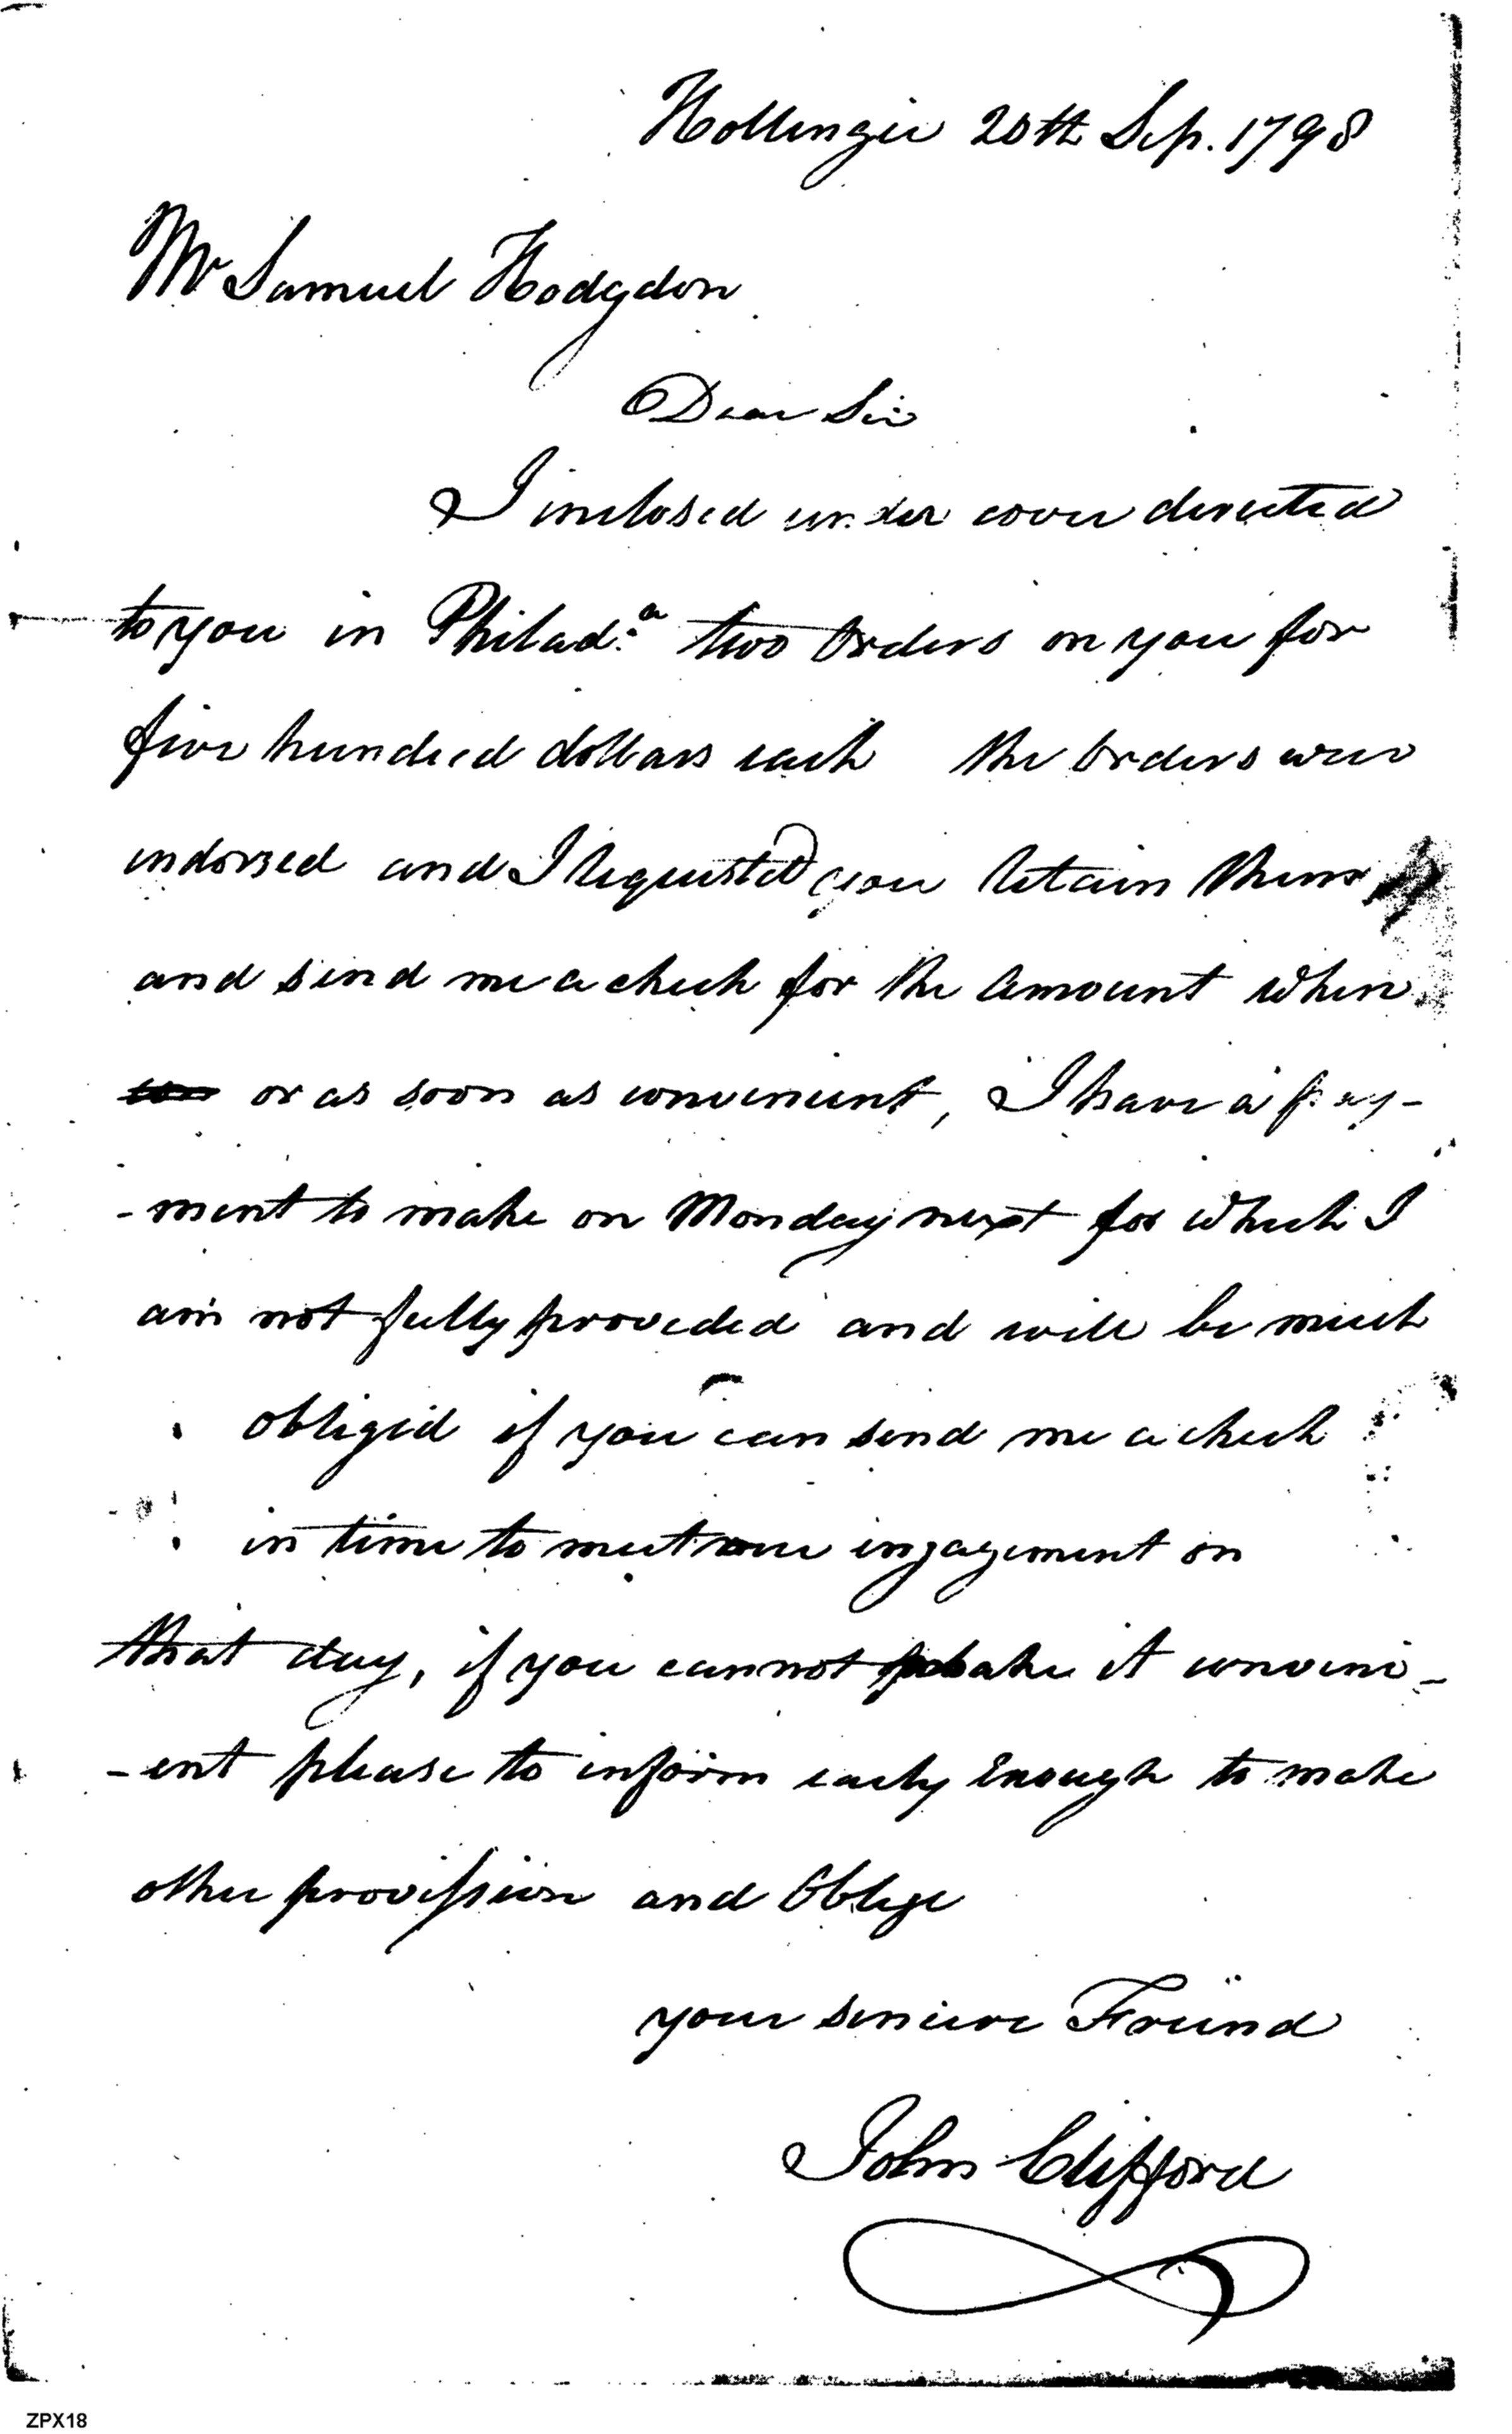 Hollingie 20th Sep. 1798
Mr Samuel Hodgdon
Dear Sir
I inclosed under cover directed
to you in Philad.a two Orders on you for
five hundred dollars each the Orders were
indorsed and I requested you retain them
and send me a check for the Amount when
or as soon as convenient, I have a pay-
-ment to make on Monday next for which I
am not fully provided and will be much
obliged if you can send me a check
in time to meet engagement on
that day, if you cannot make it conveni-
-ent please to inform early Enough to make
other provission and Oblige
your sincere Friend
John Clifford
ZPX18